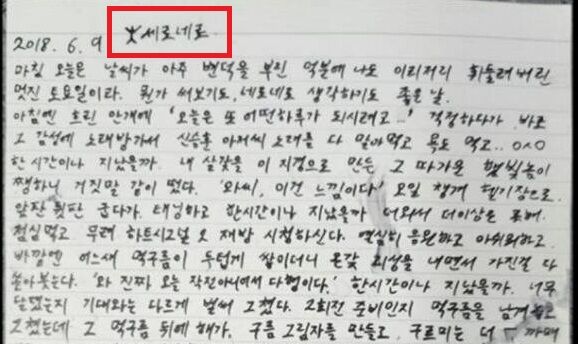 2018. 6. 9 *세로네로.
마침 오늘은 날씨가 아주 변덕을 부린 덕분에 나도 이리저리 휘둘려버린
멋진 토요일이라. 뭔가 써보기도, 네로네로 생각하기도 좋은 날.
아침엔 흐린 안개에 '오늘은 또 어떤하루가 되시려고...' 걱정하다가 바로
그 감성에 노래방가서 신승훈 아저씨 노래를 다 말아먹고 욕도 먹고.. ㅇㅅㅇ
한 시간이나 지났을까. 내 살갗을 이 지경으로 만든 그 따가운 햇빛놈이
쨍하니 거짓말 같이 떴다. '와씨, 이건 느낌이다' 오일 챙겨 헬기장으로.
앞판 뒷판 굽다가. 태닝하고 한시간이나 지났을까 더워서 더이상은 못해.
점심먹고 무려 하트시그널 2 재방 시청하신다. 열심히 응원하고 아쉬워하고.
바깥엔 어느새 먹구름이 두텁게 쌓이더니 온갖 괴성을 내면서 가진걸 다
쏟아붓는다. '와 진짜 오늘 작전아니여서 다행이다.' 한시간이나 지났을까. 너무
달렸는지 기대와는 다르게 벌써 그쳤다. 2회전 준비인지 먹구름을 남겨놓고
그쳤는데 그 먹구름 뒤에 해가. 구름 그림자를 만들고, 구르미는 더